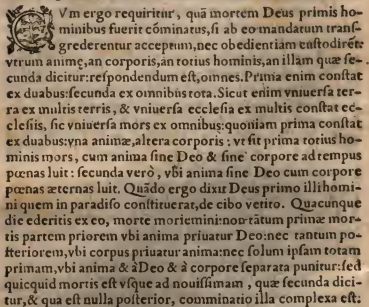 CVm ergo requiritur, quā mortem Deus primis ho-
minibus fuerit cōminatus, si ab eo mandatum trans-
grederentur acceptum, nec obedientiam custodirēt:
vtrum animę, an corporis, an totius hominis, an illam quæ se-
cunda dicitur: respondendum est, omnes. Prima enim constat
ex duabus: secunda ex omnibus tota. Sicut enim vniuersa ter-
ra ex multis terris, & vniuersa ecclesia ex multis constat ec-
clesiis, sic vniuersa mors ex omnibus: quoniam prima constat
ex duabus: vna animæ, altera corporis: vt sit prima totius ho-
minis mors, cum anima sine Deo & sine corpore ad tempus
pœnas luit: secunda verò, vbi anima sine Deo cum corpore
pœnas æternas luit. Quādo ergo dixit Deus primo illi homi-
ni quem in paradiso constituerat, de cibo vetito. Quacunque
die ederitis ex eo, morte moriemini: non tātum primæ mor-
tis partem priorem vbi anima priuatur Deo: nec tantum po-
steriorem, vbi corpus priuatur anima: nec solum ipsam totam
primam, vbi anima & à Deo & à corpore separata punitur: sed
quicquid mortis est vsque ad nouissimam, quæ secunda dici-
tur, & qua est nulla posterior, comminatio illa complexa est: